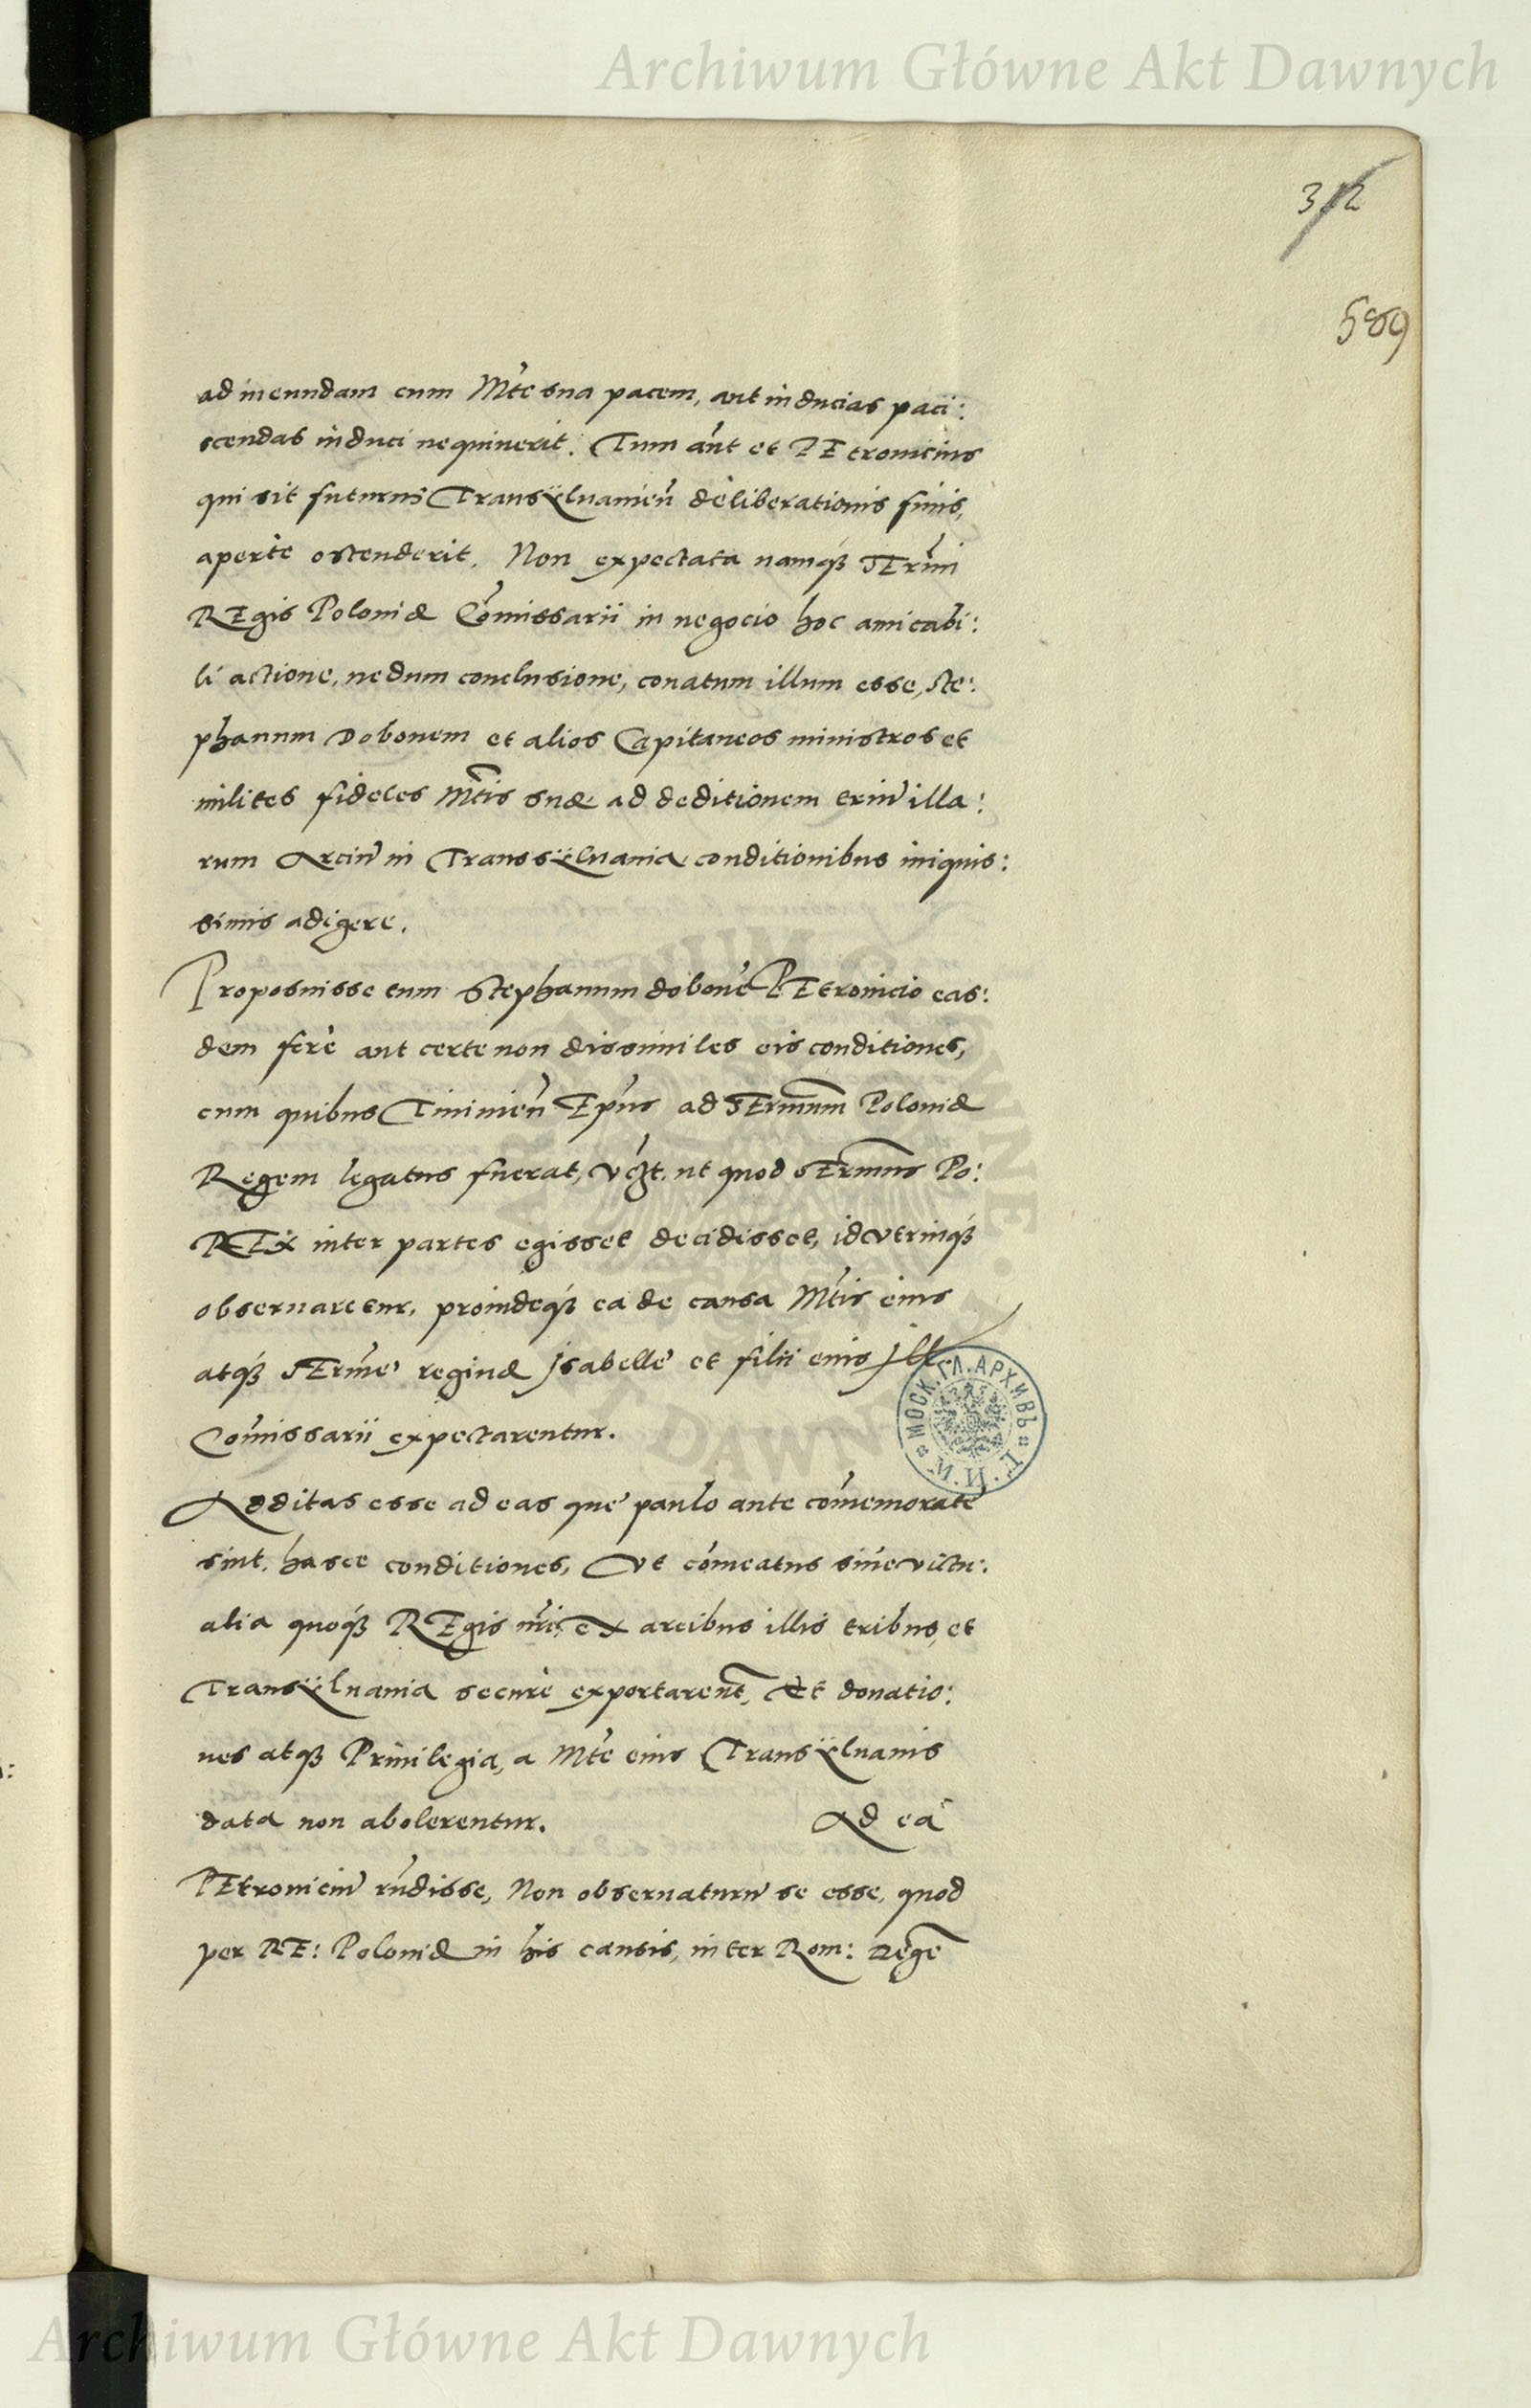 Archiwum Główne Akt Dawnych
312
589
ad ineundam cum Mte sua pacem, aut inducias paci:
scendas induci nequiuerit. Tum aut et PEtrouicius
qui sit futurus Transÿluanień deliberationis finis,
aperte ostenderit. Non expectata namq́ȝ SErmi
REgis Poloniæ Com̃issarii in negocio hoc amicabi:
li actione, nedum conclusione, conatum illum esse, Ste:
phanum Dobonem et alios Capitaneos ministros et
milites fideles Mtis suæ ad deditionem triũ illa:
rum Arciũ in Transsÿluania conditionibus iniquis:
simis adigere.
Proposuisse eum Stephanum dobonẽ PEtrouicio eas:
dem ferè aut certe non dissimiles eis conditiones,
cum quibus Tininień Ep̃us ad SErmum Poloniæ
Regem legatus fuerat, vcȝt. ut quod SErmus Po:
REx inter partes egisset decidisset, id vtrinq́ȝ
obseruaretur, proindeq́ȝ ea de causa Mtis eius
atq́ȝ SErme reginæ Jsabelle et filii eius Jll.
Com̃issarii expectarentur.
Additas esse ad eas que paulo ante com̃emorate
sint, hasce conditiones, Vt com̃eatus siue victu:
alia quoq́ȝ REgis nri, ex arcibus illis tribus, et
Transÿluania securè exportarent̃, Et donatio:
nes atqȝ Priuilegia, a Mte eius Transÿluanis
data non abolerentur. Ad ea
PEtrouiciũ rñdisse, Non obseruaturũ se esse, quod
per RE: Poloniæ in his causis, inter Rom: Regẽ
МОСК. ГЛ. АРХИВЪ
М. И. Д.
Archiwum Główne Akt Dawnych